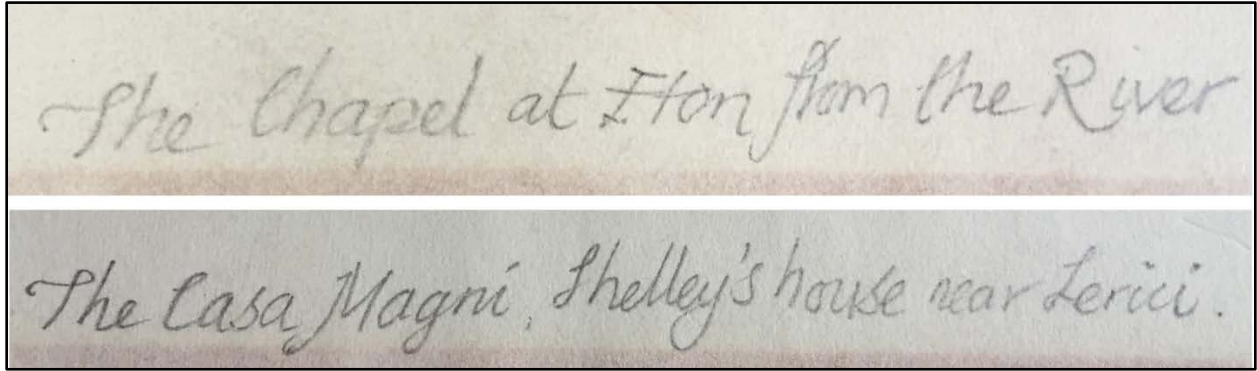 The Chapel at Eton from the River
The Casa Magni, Shelley's house near Lerici.